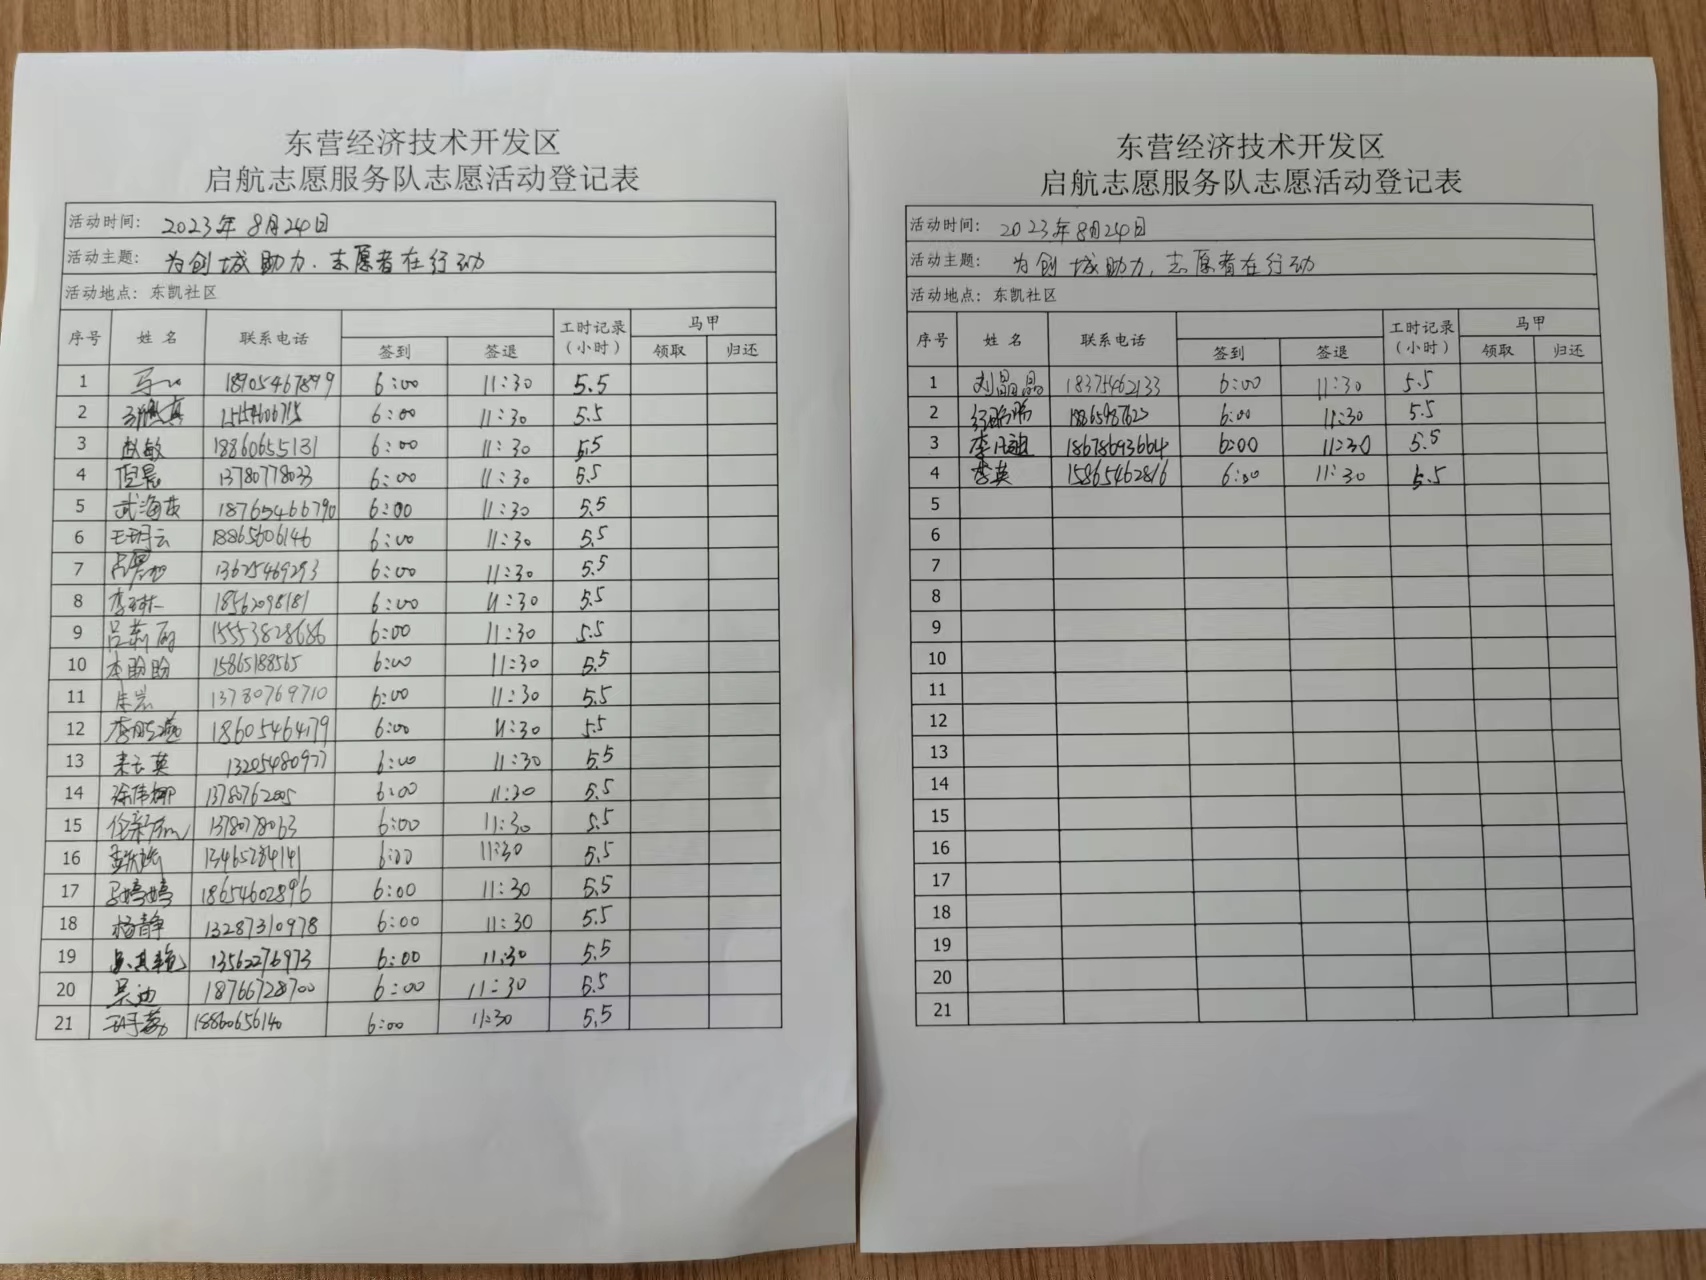 东营经济技术开发区
启航志愿服务队志愿活动登记表
活动时间： 2023年8月24日
活动主题： 为创城助力，志愿者在行动
活动地点：东凯社区
序号 姓名 联系电话 签到 签退 工时记录（小时） 马甲 领取 归还
1 18905467899 6:00 11:30 5.5
2 6:00 11:30 5.5
3 赵敏 18860655131 6:00 11:30 5.5
4 13780778033 6:00 11:30 5.5
5 武海燕 18765466790 6:00 11:30 5.5
6 18865606146 6:00 11:30 5.5
7 13625469293 6:00 11:30 5.5
8 18562098181 6:00 11:30 5.5
9 15553828686 6:00 11:30 5.5
10 李盼盼 15865188565 6:00 11:30 5.5
11 朱岩 13780769710 6:00 11:30 5.5
12 18605464179 6:00 11:30 5.5
13 13205480977 6:00 11:30 5.5
14 徐伟娜 6:00 11:30 5.5
15 6:00 11:30 5.5
16 13465284141 6:00 11:30 5.5
17 马婷婷 18654602896 6:00 11:30 5.5
18 杨静 13287310978 6:00 11:30 5.5
19 13562276973 6:00 11:30 5.5
20 吴迪 18766728700 6:00 11:30 5.5
21 18860656140 6:00 11:30 5.5
东营经济技术开发区
启航志愿服务队志愿活动登记表
活动时间： 2023年8月24日
活动主题： 为创城助力，志愿者在行动
活动地点：东凯社区
序号 姓名 联系电话 签到 签退 工时记录（小时） 马甲 领取 归还
1 刘晶晶 18375462133 6:00 11:30 5.5
2 6:00 11:30 5.5
3 18678693664 6:00 11:30 5.5
4 李英 15865462816 6:00 11:30 5.5
5
6
7
8
9
10
11
12
13
14
15
16
17
18
19
20
21